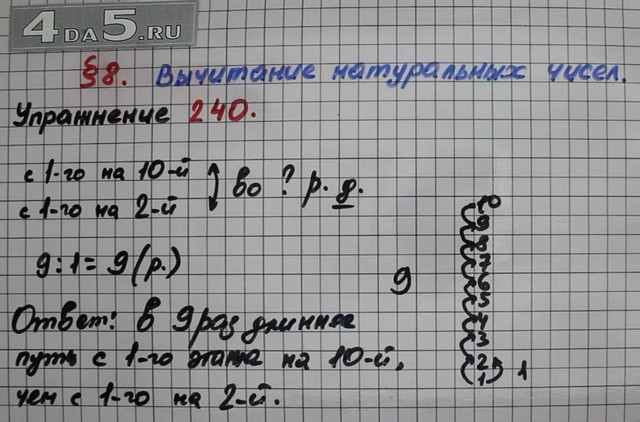 4DA5.RU
§8. Вычитание натуральных чисел.
Упражнение 240.
с 1-го на 10-й
с 1-го на 2-й
во ? р. д.
10
9
8
7
6
5
4
3
2
1
1
9
9:1=9(р.)
Ответ: в 9 раз длиннее
путь с 1-го этажа на 10-й,
чем с 1-го на 2-й.